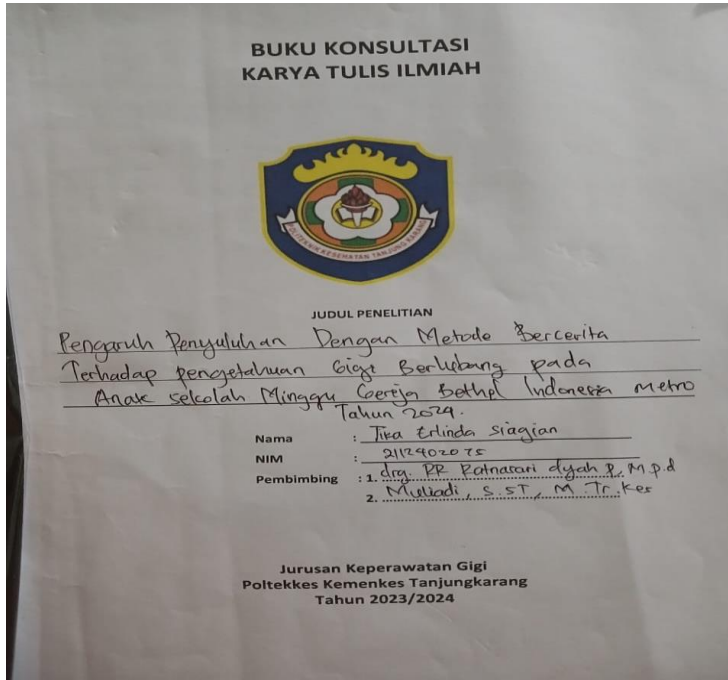 BUKU KONSULTASI
KARYA TULIS ILMIAH
POLITEKNIK KESEHATAN TANJUNG KARANG
JUDUL PENELITIAN
Pengaruh Penyuluhan Dengan Metode Bercerita
Terhadap pengetahuan Gigi Berlubang pada
Anak sekolah Minggu Gereja Bethel Indonesia Metro
Tahun 2024.
Nama : Tika Erlinda Siagian
NIM : 2112402075
Pembimbing : 1. drg. RR Ratnasari dyah P, M.p.d
2. Muliadi, S.ST, M.Tr.Kes
Jurusan Keperawatan Gigi
Poltekkes Kemenkes Tanjungkarang
Tahun 2023/2024